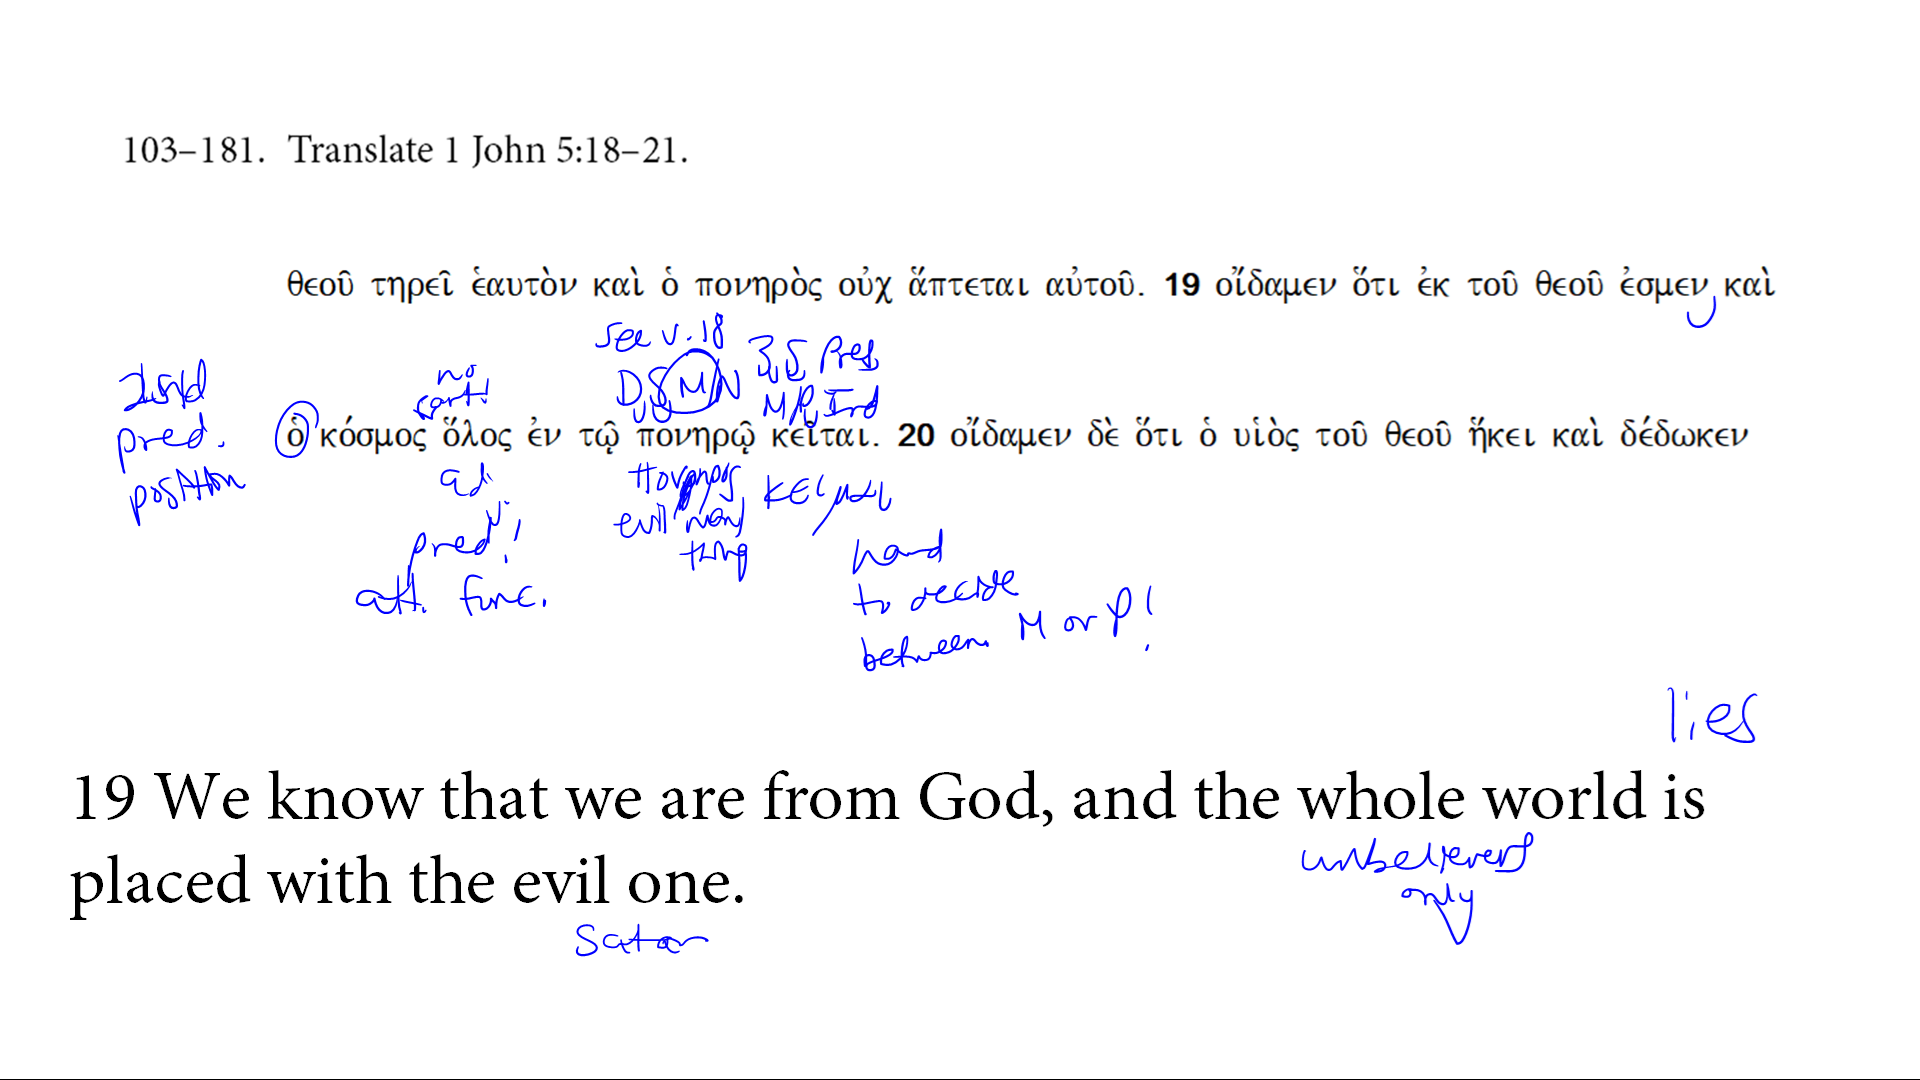 103–181. Translate 1 John 5:18–21.
θεοῦ τηρεῖ ἑαυτὸν καὶ ὁ πονηρὸς οὐχ ἅπτεται αὐτοῦ. 19 οἴδαμεν ὅτι ἐκ τοῦ θεοῦ ἐσμεν, καὶ
see v. 18
2nd
pred.
position
no
art!
DSM/N
3S Pres
M/P Ind
ὁ κόσμος ὅλος ἐν τῷ πονηρῷ κεῖται. 20 οἴδαμεν δὲ ὅτι ὁ υἱὸς τοῦ θεοῦ ἥκει καὶ δέδωκεν
adj.
pred!
att. func.
πονηρος
evil man/
thing
κειμαι
hard
to decide
between M or P!
lies
19 We know that we are from God, and the whole world is
unbelievers
only
placed with the evil one.
Satan